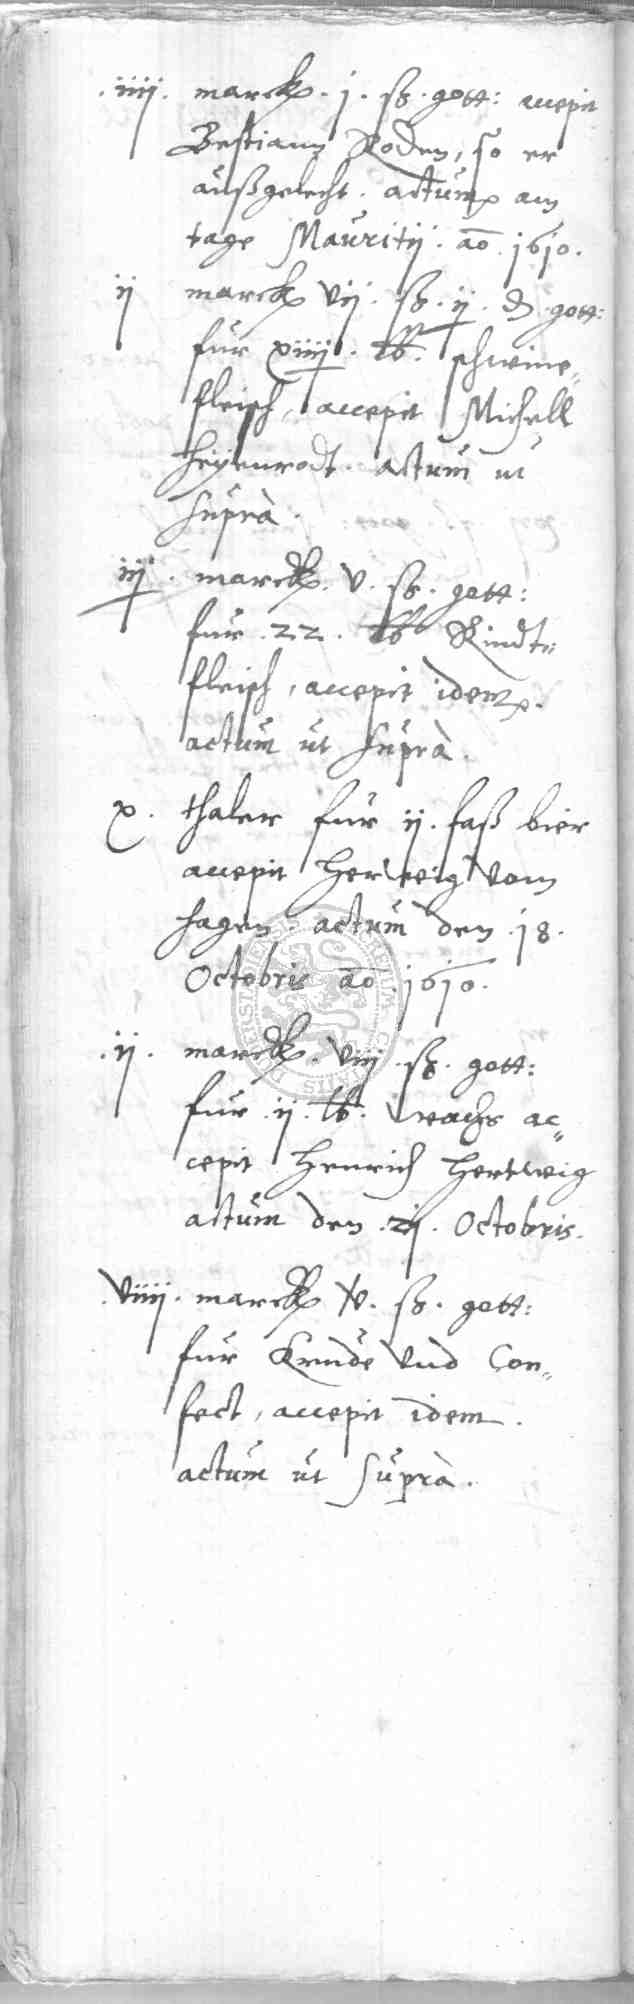 .iiij. marck. j. ß. gott: accepit
Bestiann Roden, so er
außgelecht. actum am
tage Mauritij. ao. 1610.
ij marck vij. ß. ij. ₰. gott:
fur xiiij. lb. schweine„
fleisch, accepit Michell
Heyenrodt. actum ut
suprà.
iij. marck. v. ß. gott:
fur .22. lb Rindt„
fleisch, accepit idem.
actum ut suprà.
x. thaler fur ij. faß bier
accepit Herweig vom
hagen. actum den .18.
Octobris ao .1610.
.ij. marck. viij. ß. gott:
fur .ij. lb. wachs ac„
cepit Henrich Hertweig
actum den .21. Octobris.
.viiij. marck v. ß. gott:
fur Krude vnd Con„
fect, accepit idem.
actum ut suprà.